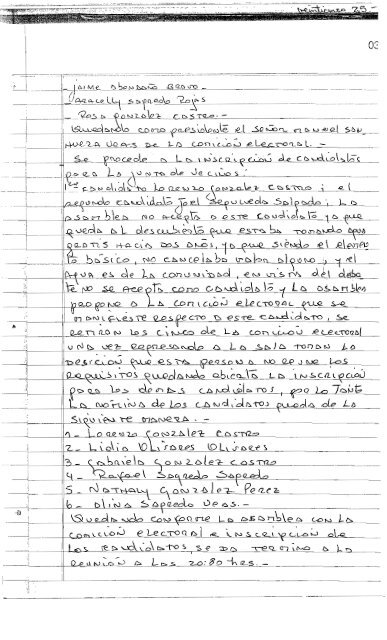 veinticinco 25-
03
- Jaime Abendaño Bravo
- Aracelly Sagredo Rojas
- Rosa Gonzalez Castro.-
Quedando como presidente el señor Manuel San
hueza Veas de la comición electoral.-
Se procede a la inscripción de candidatos
para la junta de vecinos:
1er candidato Lorenzo Gonzalez Castro; el
segundo candidato Joel Sepulveda Salgado; la
asamblea no acepta a este candidato ya que
queda al descubierto que estaba tomando agua
gratis hacia dos años, ya que siendo el elemen
to básico, no cancelaba valor alguno, y el
agua es de la comunidad, en vista del deba
te no se acepta como candidato y la asamblea
propone a la comición electoral que se
manifieste respecto a este candidato, se
retiran los cinco de la comición electoral
una vez regresando a la sala toman la
desición que esta persona no reune los
requisitos quedando abierta la inscripción
para los demás candidatos, por lo tanto
la nómina de los candidatos queda de la
siguiente manera.-
1- Lorenzo Gonzalez Castro
2- Lidia Olivares Olivares
3- Gabriela Gonzalez Castro
4- Rafael Sagredo Sagredo
5- Nathaly Gonzalez Perez
6- Alina Sagredo Veas.-
Quedando conforme la asamblea con la
comición electoral e inscripción de
los candidatos, se da termino a la
reunión a las 20:80 hrs.-